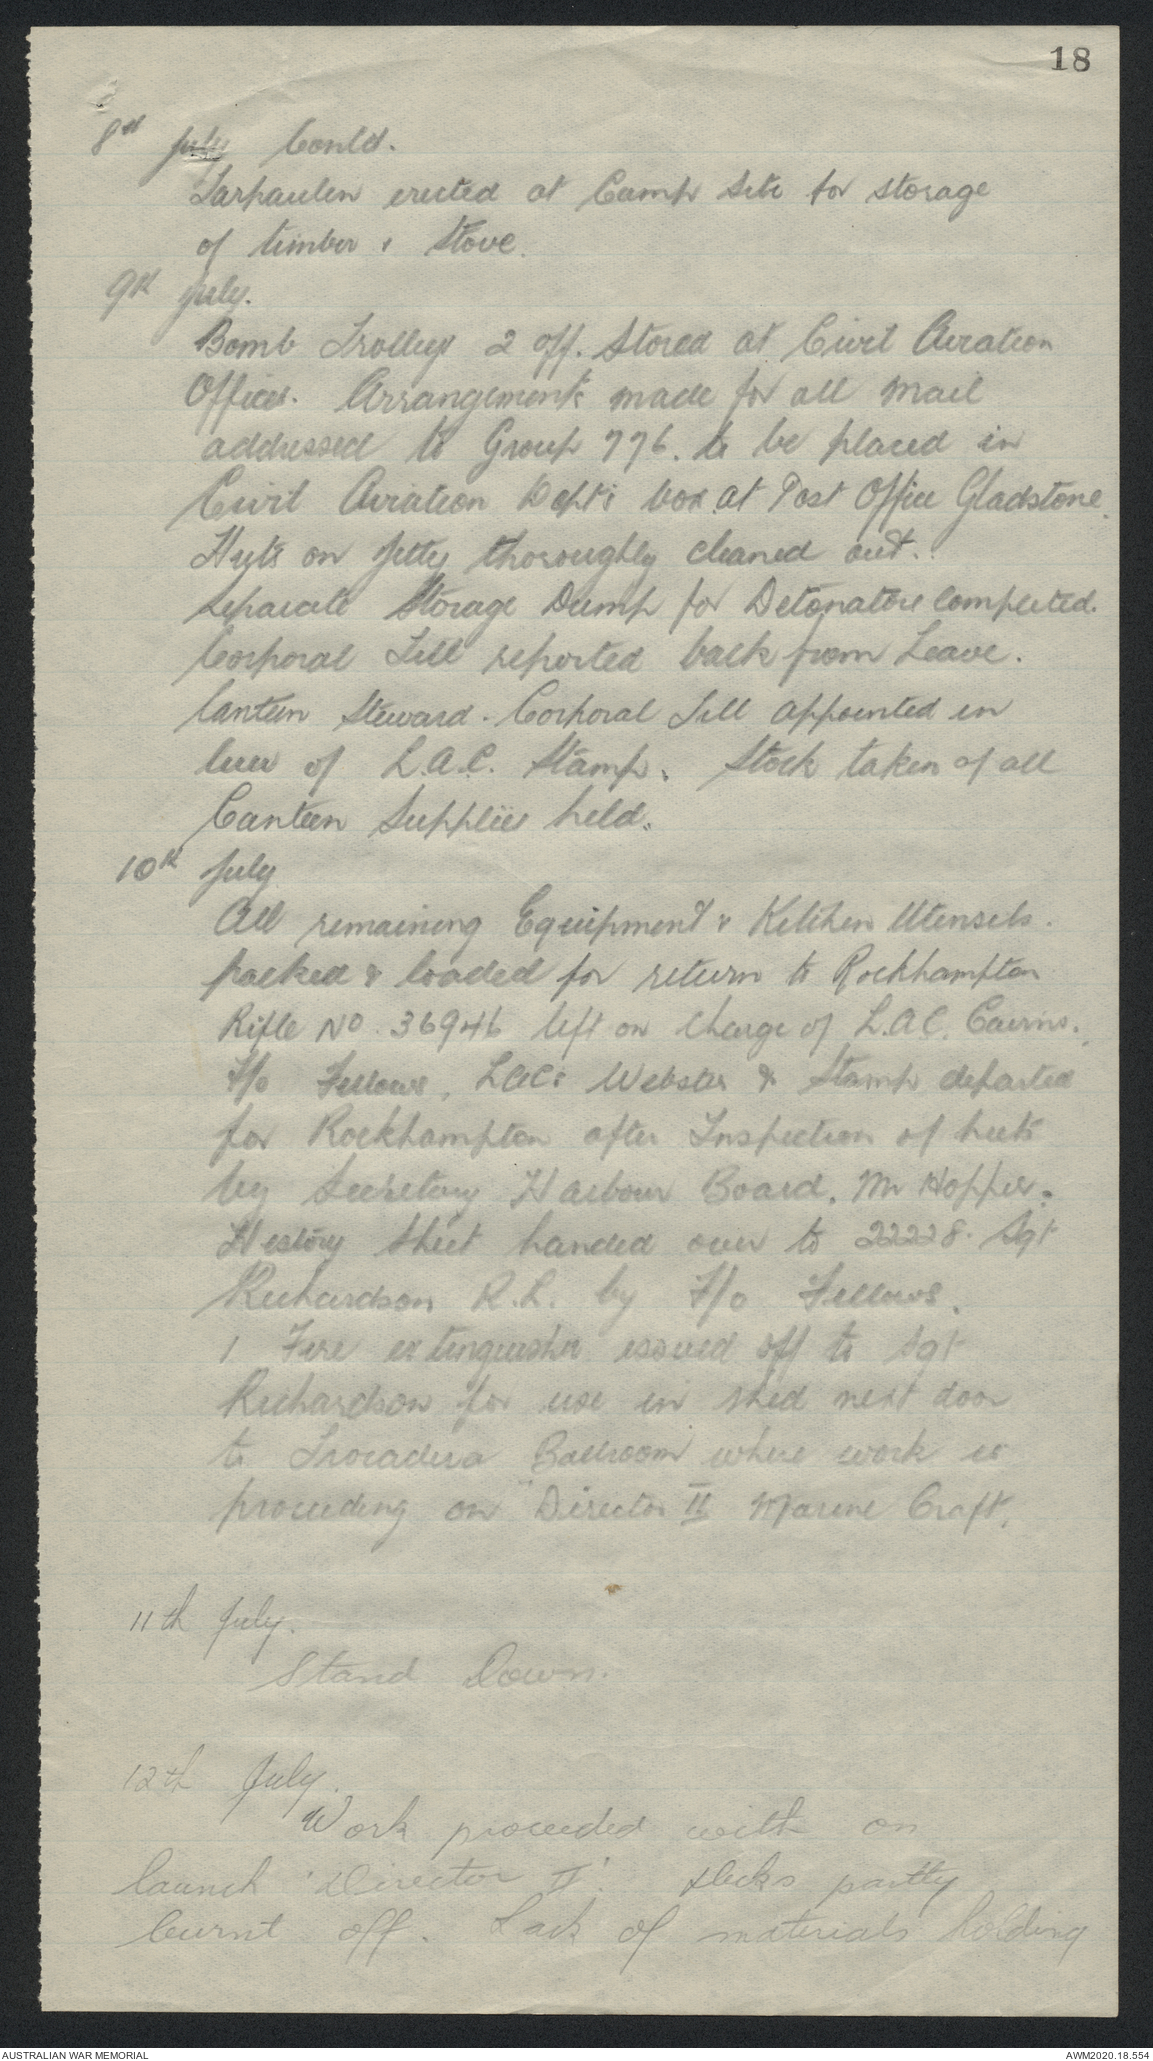 18
8th July Contd.
Tarpaulin erected at Camp Site for storage
of timber & Stove.
9th July.
Bomb Trolleys 2 off. Stored at Civil Aviation
Offices. Arrangements made for all mail
addressed to Group 776. to be placed in
Civil Aviation Dept's box at Post Office Gladstone.
Huts on Jetty thoroughly cleaned out.
Separate Storage Dump for Detonators completed.
Corporal Till reported back from Leave.
Canteen Steward - Corporal Till appointed in
lieu of L.A.C. Stamp. Stock taken of all
Canteen Supplies held.
10th July
All remaining Equipment & Kitchen Utensils.
packed & loaded for return to Rockhampton
Rifle No. 36946 left on charge of L.A.C. Cairns.
F/o Fellows, LACs Webster & Stamp departed
for Rockhampton after Inspection of huts
by Secretary Harbour Board. Mr Hopper.
History Sheet handed over to 22228. Sgt
Richardson R.L. by F/o Fellows.
1 Fire extinguisher issued off to Sgt
Richardson for use in shed next door
to Trocadero Ballroom where work is
proceeding on "Director II Marine Craft.
11th July.
Stand Down.
12th July.
Work proceeded with on
launch 'Director II'. Decks partly
burnt off. Lack of materials holding
AUSTRALIAN WAR MEMORIAL
AWM2020.18.554